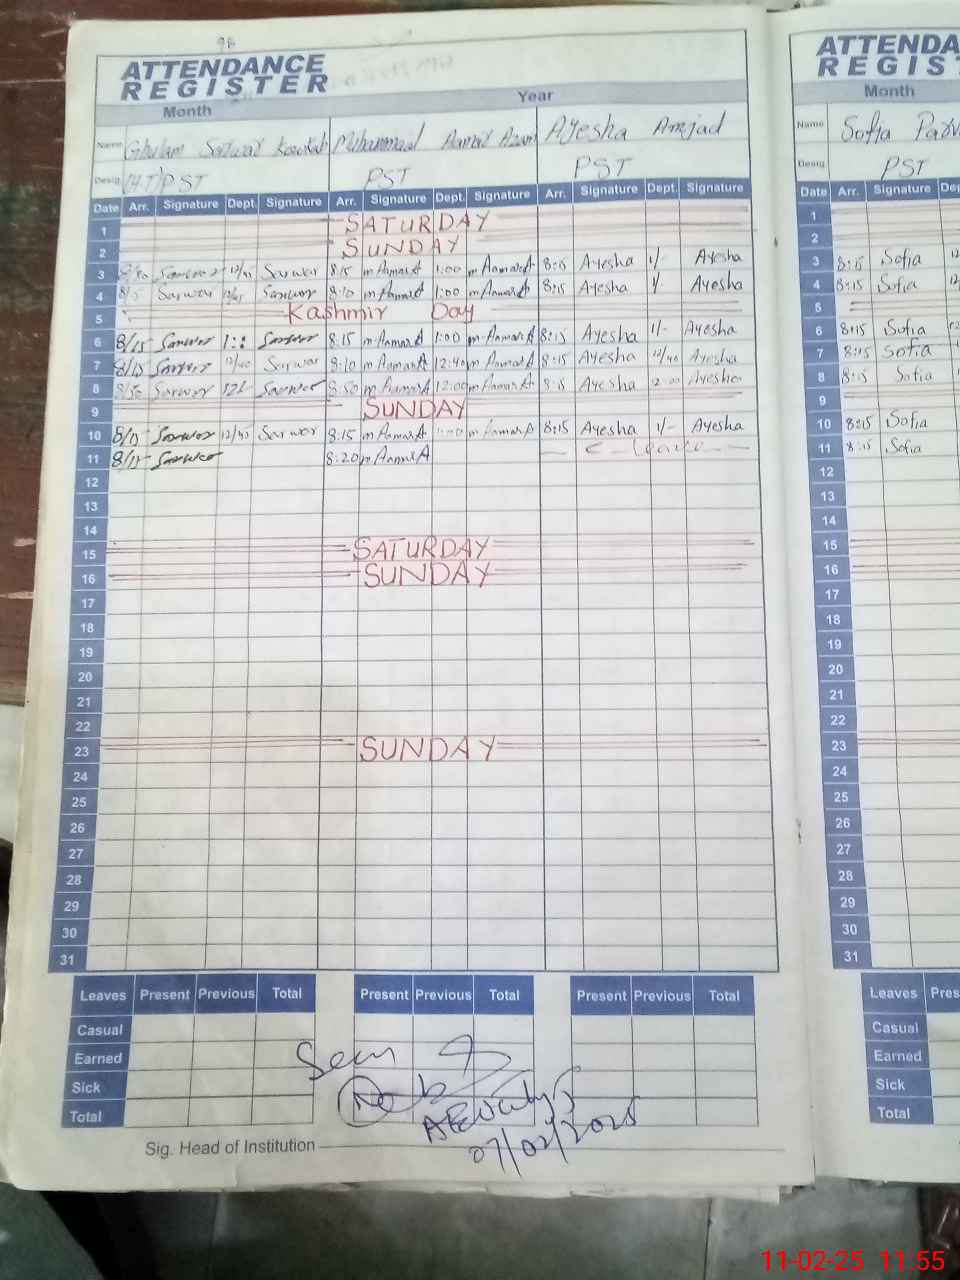 98
ATTENDANCE
REGISTER
Month Year
Name Ghulam Sarwar Kowkab Muhammad Aamar Azam Ayesha Amjad
Desig. (H.T) PST PST PST
Date Arr. Signature Dept. Signature Arr. Signature Dept. Signature Arr. Signature Dept. Signature
1 SATURDAY
2 SUNDAY
3 Sarwar Sarwar 8:15 m Aamar A 1:00 m Aamar A 8:15 Ayesha 1/- Ayesha
4 Sarwar Sarwar 8:10 m Aamar A 1:00 m Aamar A 8:15 Ayesha 1/- Ayesha
5 Kashmir Day
6 8/15 Sarwar Sarwar 8:15 m Aamar A 1:00 m Aamar A 8:15 Ayesha 1/- Ayesha
7 8/15 Sarwar 12/40 Sarwar 8:10 m Aamar A 12:40 m Aamar A 8:15 Ayesha 12/40 Ayesha
8 8/50 Sarwar Sarwar 8:50 m Aamar A 12:00 m Aamar A 8:15 Ayesha 12:00 Ayesha
9 SUNDAY
10 8/15 Sarwar Sarwar 8:15 m Aamar A 1:00 m Aamar A 8:15 Ayesha 1/- Ayesha
11 Sarwar 8:20 m Aamar A Leave
12
13
14
15 SATURDAY
16 SUNDAY
17
18
19
20
21
22
23 SUNDAY
24
25
26
27
28
29
30
31
Leaves Present Previous Total Present Previous Total Present Previous Total
Casual
Earned
Sick
Total
Seen
07/02/2025
Sig. Head of Institution
ATTENDA
REGIST
Month
Name Sofia Parv
Desig. PST
Date Arr. Signature Dep
1
2
3 8:15 Sofia
4 8:15 Sofia
5
6 8:15 Sofia
7 8:15 Sofia
8 8:15 Sofia
9
10 8:15 Sofia
11 8:15 Sofia
12
13
14
15
16
17
18
19
20
21
22
23
24
25
26
27
28
29
30
31
Leaves Pres
Casual
Earned
Sick
Total
11-02-25 11.55